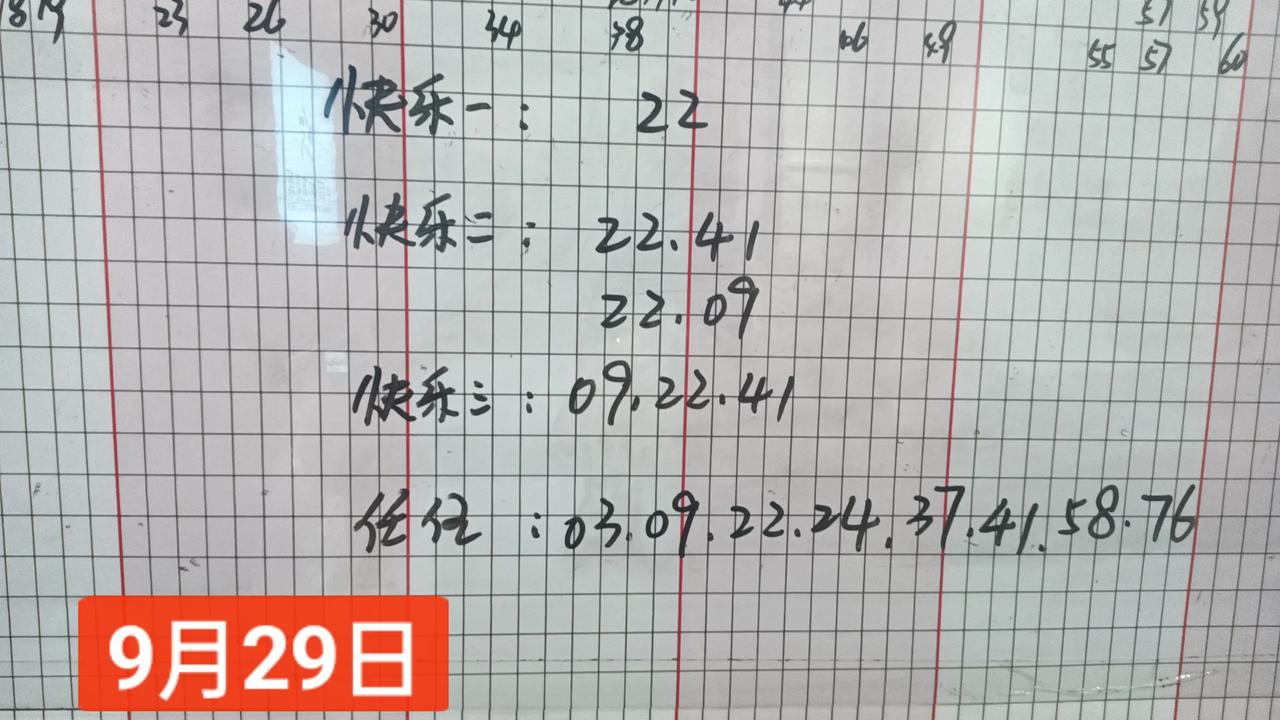 18 19 23 26 30 34 38 46 49 57 59
55 57 60
快乐一： 22
快乐二： 22.41
22.09
快乐三：09.22.41
任任：03.09.22.24.37.41.58.76
9月29日